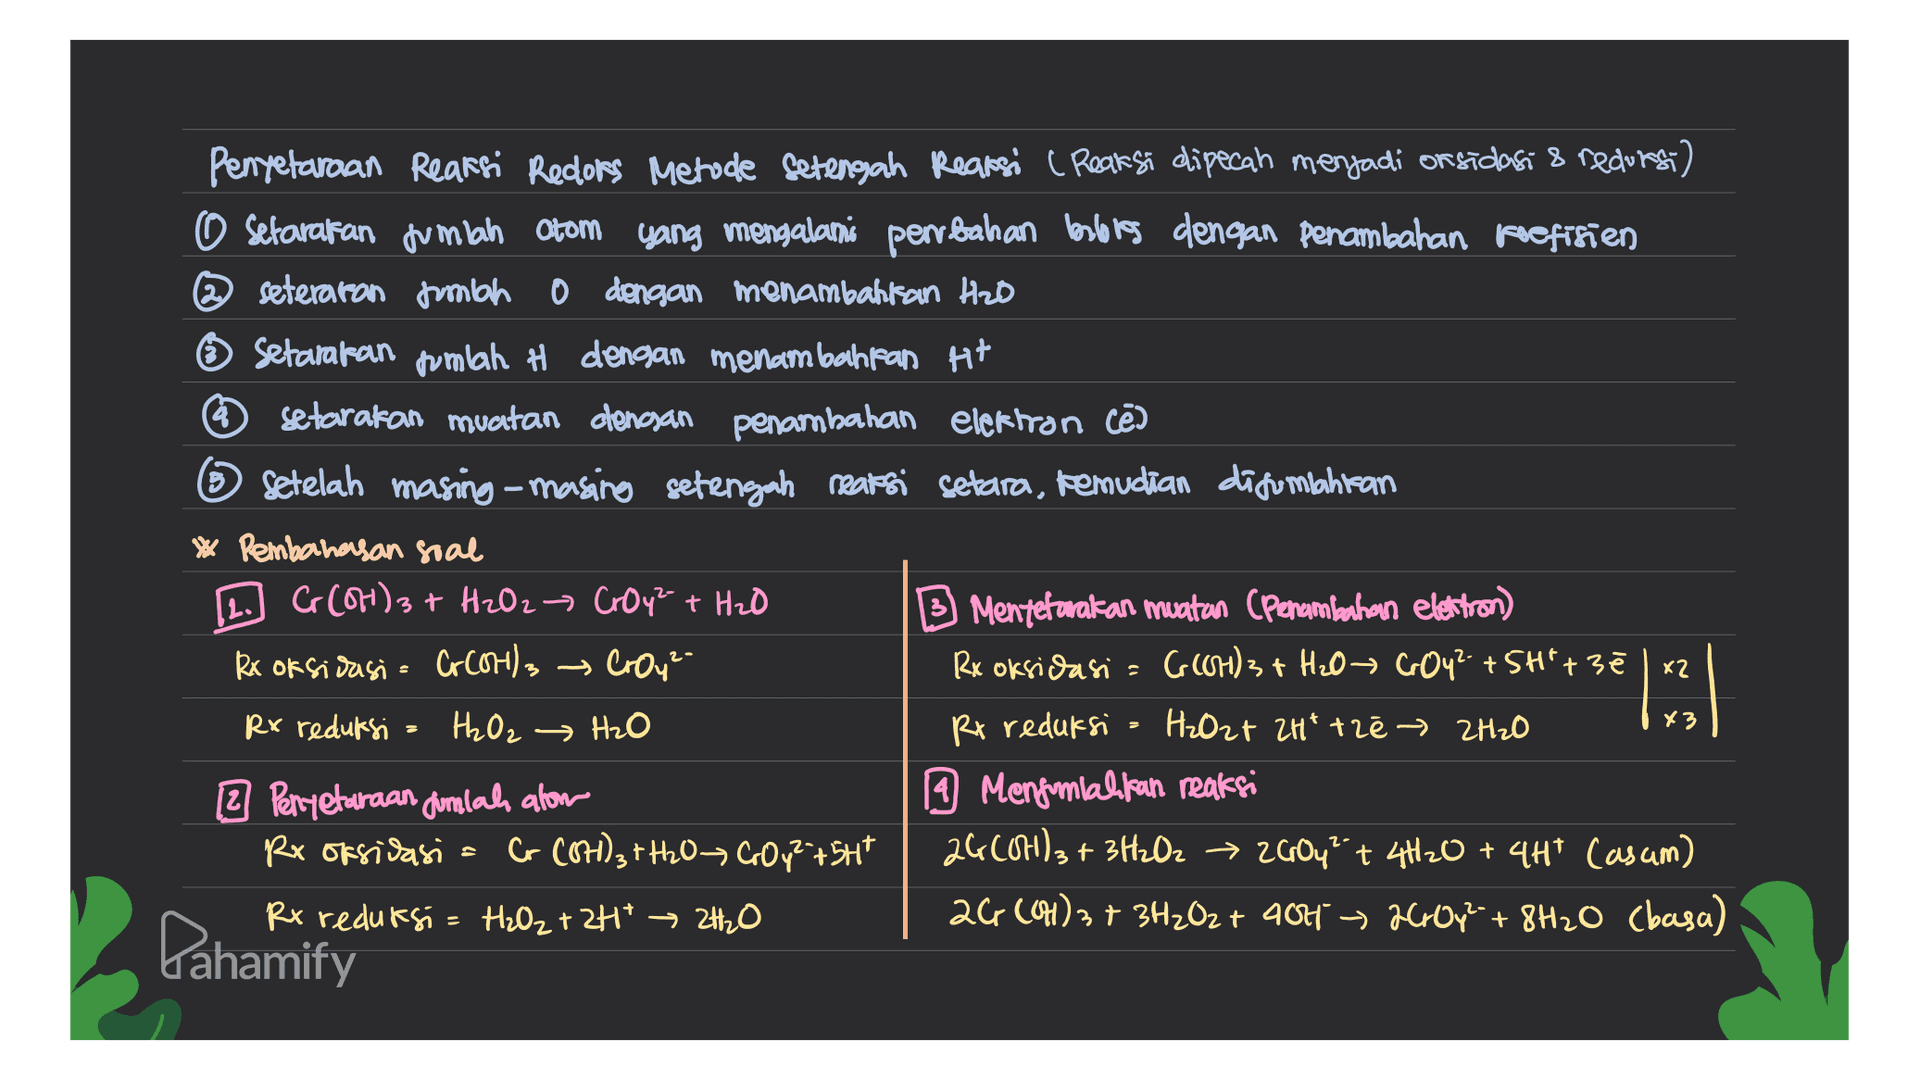 Penyetaraan Reaksi Redoks Metode Setengah Reaksi (Reaksi dipecah menjadi oksidasi & reduksi)
① Setarakan jumlah atom yang mengalami perubahan biloks dengan penambahan koefisien
② seterakan jumlah O dengan menambahkan H₂O
③ Setarakan jumlah H dengan menambahkan H⁺
④ setarakan muatan dengan penambahan elektron (ē)
⑤ Setelah masing-masing setengah reaksi setara, kemudian dijumlahkan
※ Pembahasan soal
1. Cr(OH)₃ + H₂O₂ → CrO₄²⁻ + H₂O
Rx oksidasi = Cr(OH)₃ → CrO₄²⁻
Rx reduksi = H₂O₂ → H₂O
2 Penyetaraan jumlah atom
Rx oksidasi = Cr(OH)₃ + H₂O → CrO₄²⁻ + 5H⁺
Rx reduksi = H₂O₂ + 2H⁺ → 2H₂O
3 Menyetarakan muatan (Penambahan elektron)
Rx oksidasi = Cr(OH)₃ + H₂O → CrO₄²⁻ + 5H⁺ + 3ē | x2 |
Rx reduksi = H₂O₂ + 2H⁺ + 2ē → 2H₂O | x3 |
4 Menjumlahkan reaksi
2Cr(OH)₃ + 3H₂O₂ → 2CrO₄²⁻ + 4H₂O + 4H⁺ (asam)
2Cr(OH)₃ + 3H₂O₂ + 4OH⁻ → 2CrO₄²⁻ + 8H₂O (basa)
Pahamify